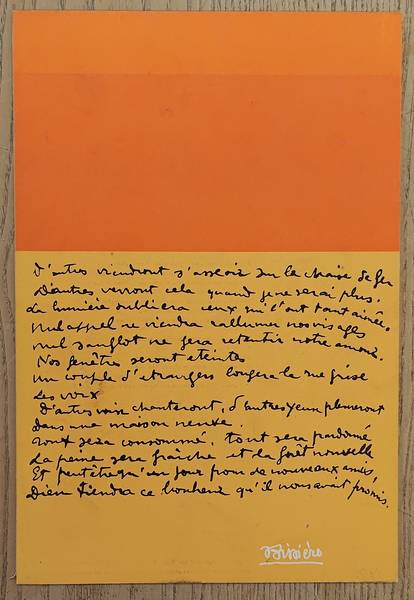 D'autres viendront s'asseoir sur la chaise de fer
D'autres verront cela quand je ne serai plus.
La lumière oubliera ceux qui l'ont tant aimée.
Nul appel ne viendra rallumer nos visages
nul sanglot ne fera retentir notre amour.
Nos fenêtres seront éteintes
un couple d'étrangers longera la rue grise
Les voix
D'autres voix chanteront, d'autres yeux pleureront
dans une maison neuve.
Tout sera consommé, tout sera pardonné
La peine sera fraîche et la forêt nouvelle
Et peut-être qu'un jour pour de nouveaux amis,
Dieu tiendra ce bonheur qu'il nous avait promis.
Bissière